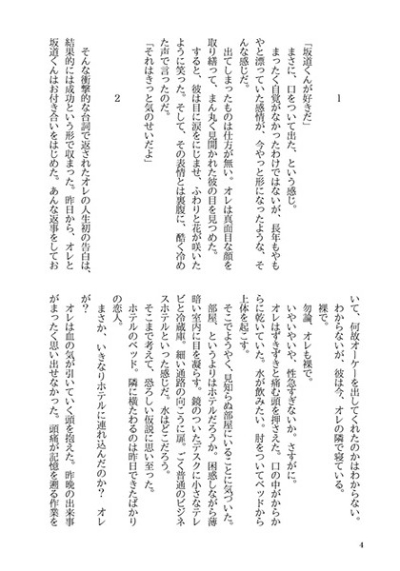 1
「坂道くんが好きだ」
まさに、口をついて出た、という感じ。
まったく自覚がなかったわけではないが、長年もやも
やと漂っていた感情が、今やっと形になったような、そ
んな感じだ。
出てしまったものは仕方が無い。オレは真面目な顔を
取り繕って、まん丸く見開かれた彼の目を見つめた。
すると、彼は目に涙をにじませ、ふわりと花が咲いた
ように笑った。そして、その表情とは裏腹に、酷く冷め
た声で言ったのだ。
「それはきっと気のせいだよ」
2
そんな衝撃的な台詞で返されたオレの人生初の告白は、
結果的には成功という形で収まった。昨日から、オレと
坂道くんはお付き合いをはじめた。あんな返事をしてお
いて、何故オーケーを出してくれたのかはわからない。
わからないが、彼は今、オレの隣で寝ている。
裸で。
勿論、オレも裸で。
いやいやいや、性急すぎないか。さすがに。
オレはずきずきと痛む頭を押さえた。口の中がからか
らに乾いていた。水が飲みたい。肘をついてベッドから
上体を起こす。
そこでようやく、見知らぬ部屋にいることに気づいた。
部屋、というよりはホテルだろうか。困惑しながら薄
暗い室内に目を凝らす。鏡のついたデスクに小さなテレ
ビと冷蔵庫。細い通路の向こうに扉。ごく普通のビジネ
スホテルといった感じだ。水はどこだろう。
そこまで考えて、恐ろしい仮説に思い至った。
ホテルのベッド。隣に横たわるのは昨日できたばかり
の恋人。
まさか、いきなりホテルに連れ込んだのか？　オレ
が？
オレは血の気が引いていく頭を抱えた。昨晩の出来事
がまったく思い出せなかった。頭痛が記憶を遡る作業を
4